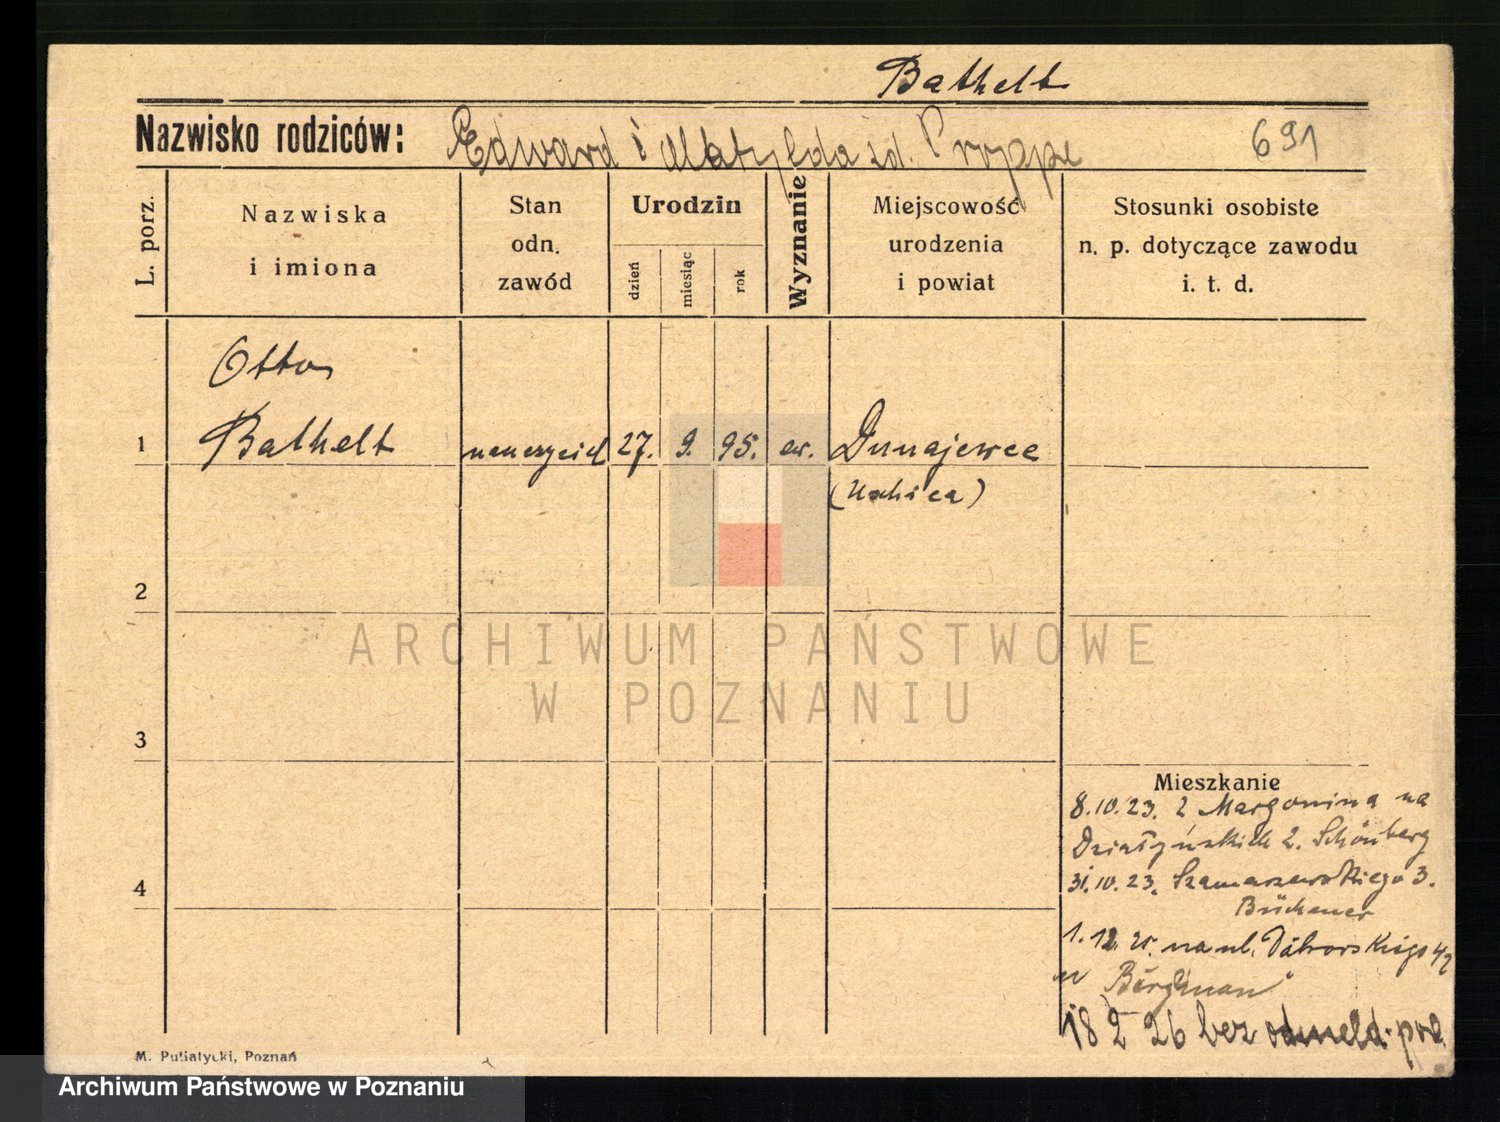 Bathelt
Nazwisko rodziców: Edward i Matylda zd. Proppe 691
L. porz.
Nazwiska
i imiona
Stan
odn.
zawód
Urodzin
dzień
miesiąc
rok
Wyznanie
Miejscowość
urodzenia
i powiat
Stosunki osobiste
n. p. dotyczące zawodu
i. t. d.
Otto
1 Bathelt nauczyciel 27. 9. 95. ew. Dunajewce
2
3
Mieszkanie
8.10.23. z Margonina na
Działyńskich 2. Schönberg
4
31.10.23. Szamarzewskiego 3.
Büchener
1. 12. 25. na ul.
Bergman
18 2 26 bez odmeld. pol.
M. Putiatycki, Poznań
ARCHIWUM PAŃSTWOWE
W POZNANIU
Archiwum Państwowe w Poznaniu